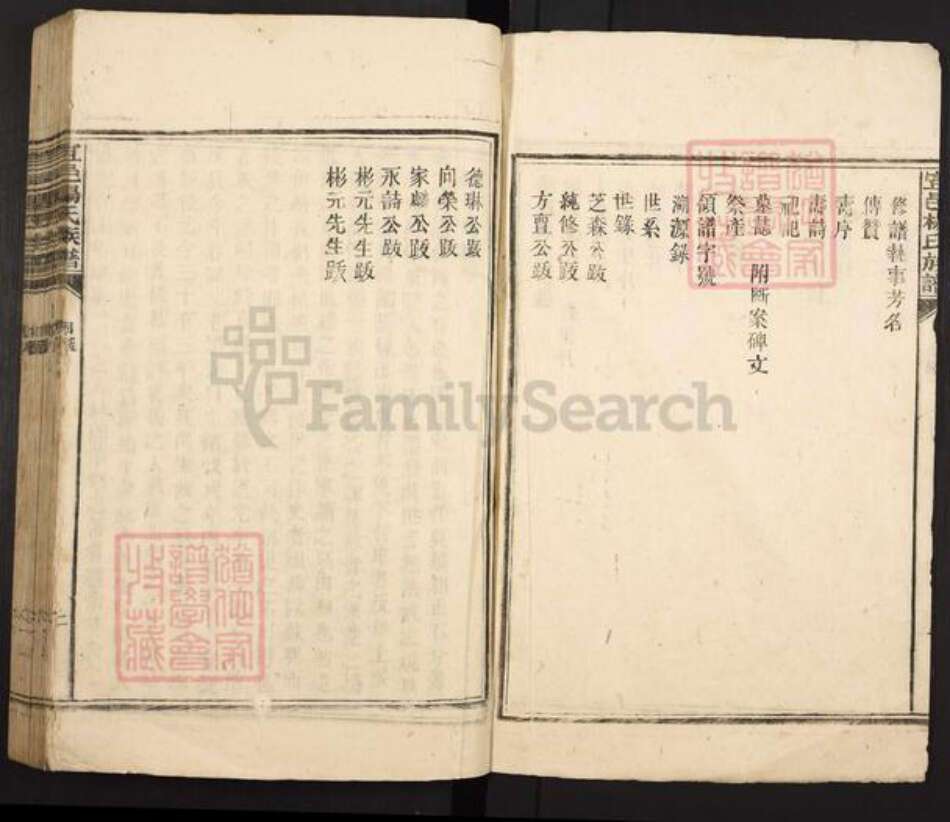 宜邑楊氏族譜
修譜執事芳名
傳贊
壽序
壽詩
祀記
墓誌 附斷案碑文
祭產
領譜字號
淵源錄
世系
世錄
芝森公跋
純修公跋
方亶公跋
德琳公跋
向榮公跋
家麟公跋
永詩公跋
彬元先生跋
彬元先生跋
宜邑楊氏族譜
猶他家譜學會收藏
猶他家譜學會收藏
FamilySearch